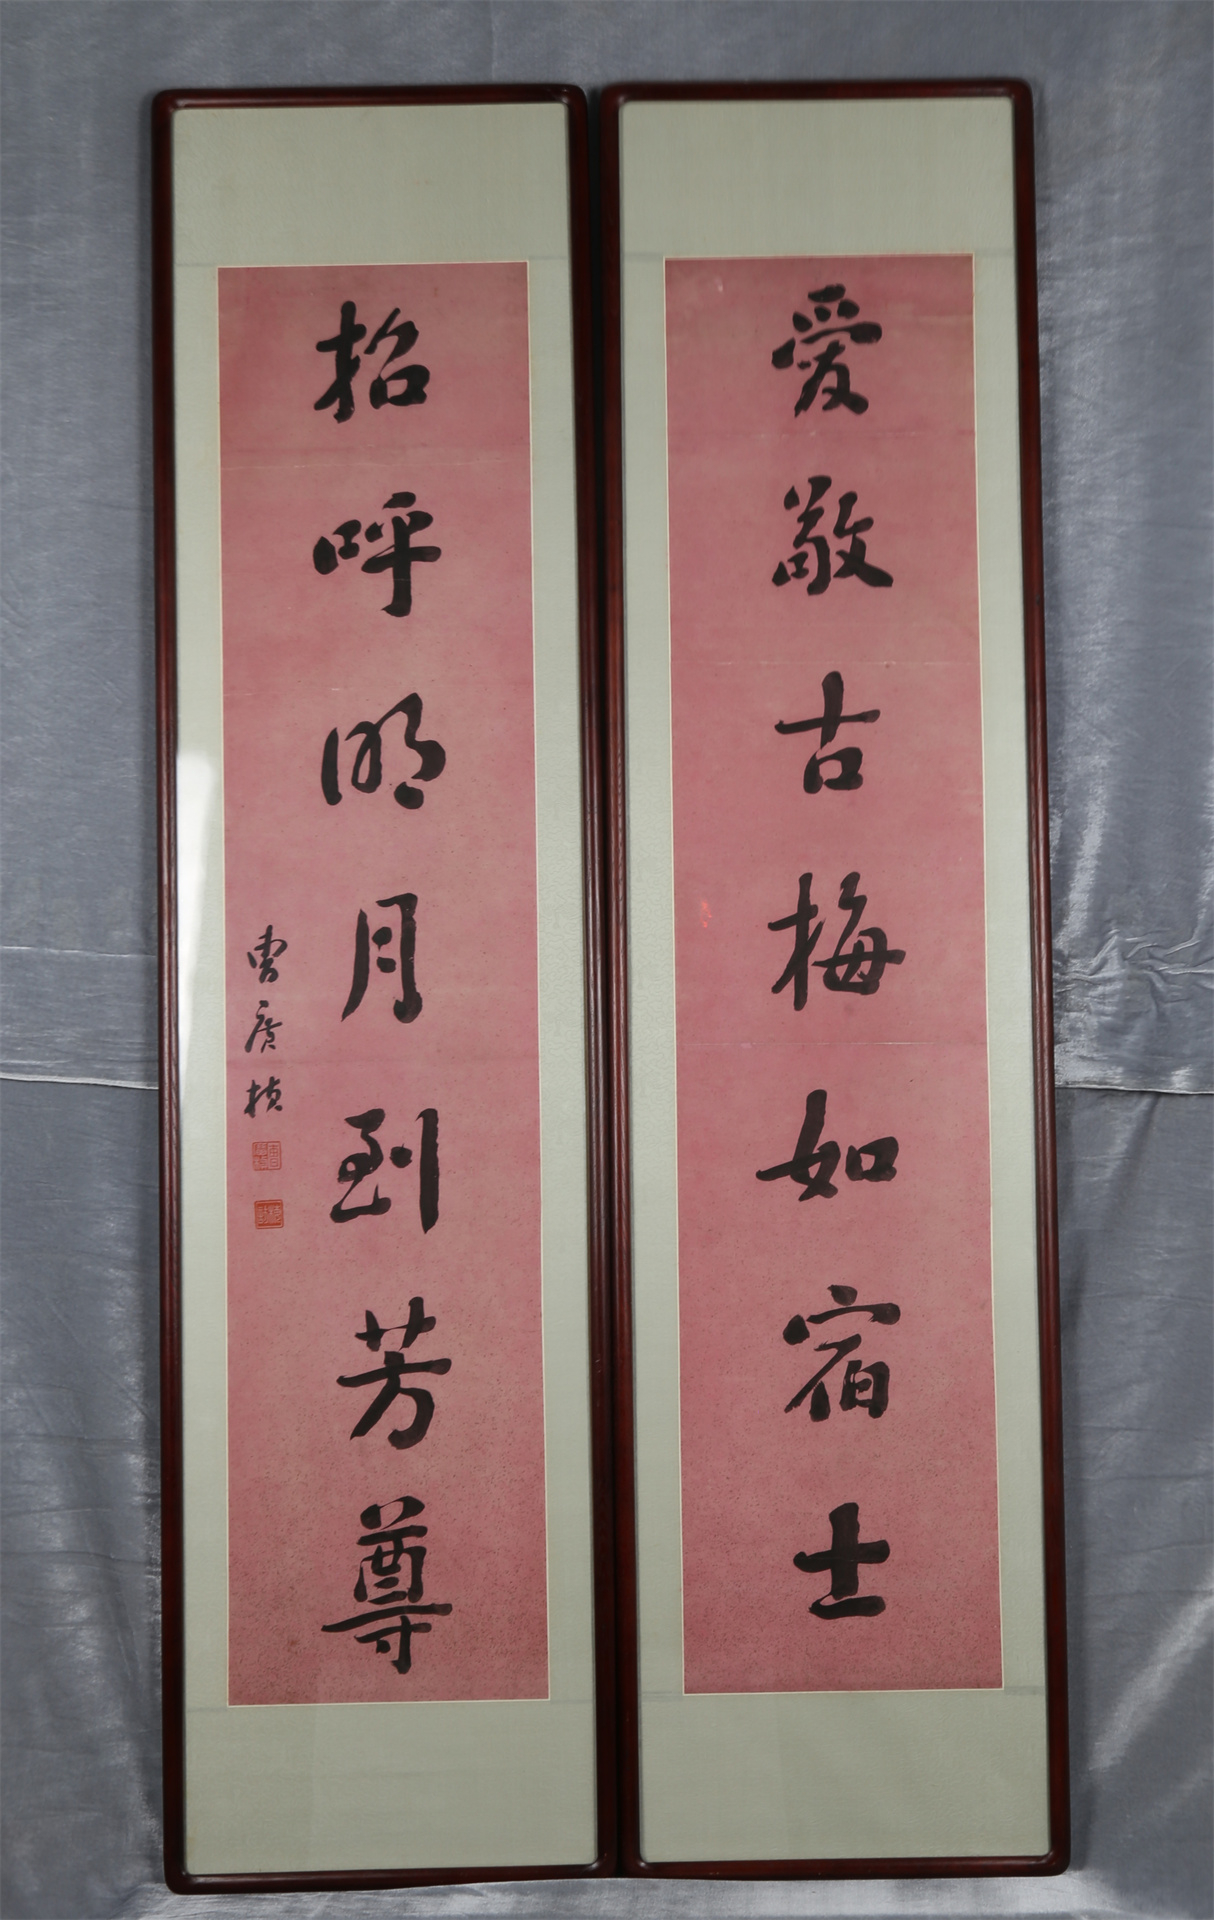 爱敬古梅如宿士
招呼明月到芳尊
曹广桢